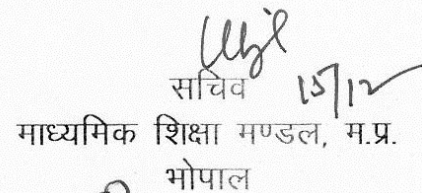 सचिव 15/12
माध्यमिक शिक्षा मण्डल, म.प्र.
भोपाल